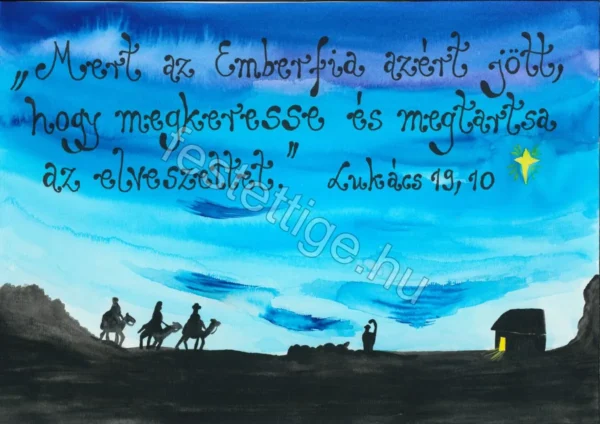 „Mert az Emberfia azért jött,
hogy megkeresse és megtartsa
az elveszettet.” Lukács 19, 10
festettige.hu